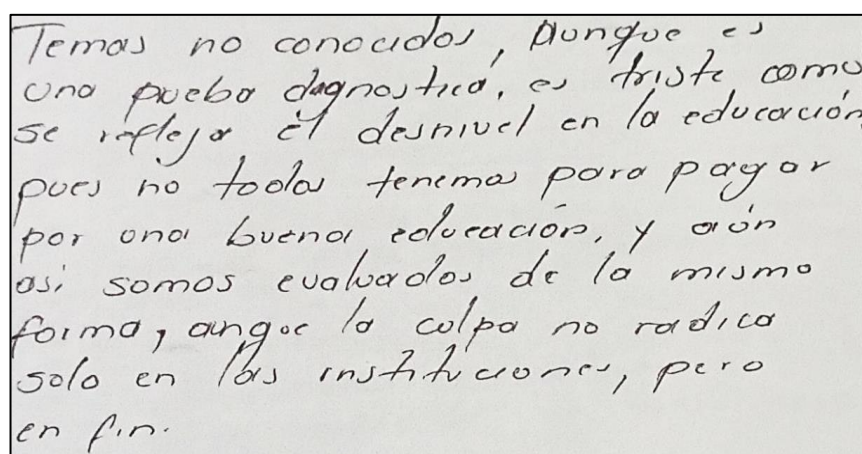 Temas no conocidos, Aunque es
una pueba dagnostica, es triste como
se refleja el desnivel en la educación
pues no todos tenemos para pagar
por una buena educación, y aún
asi somos evaluados de la misma
forma, angue la culpa no radica
solo en las instituciones, pero
en fin.